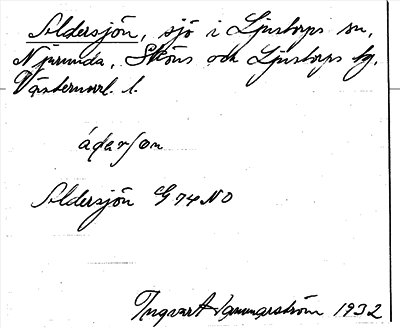 Åldersjön, sjö i Ljustorps sn,
Njurunda, Sköns och Ljustorps tg,
Västernorrl. l.
Åldersjön G 74 NO
Ingvar Hammarström 1932